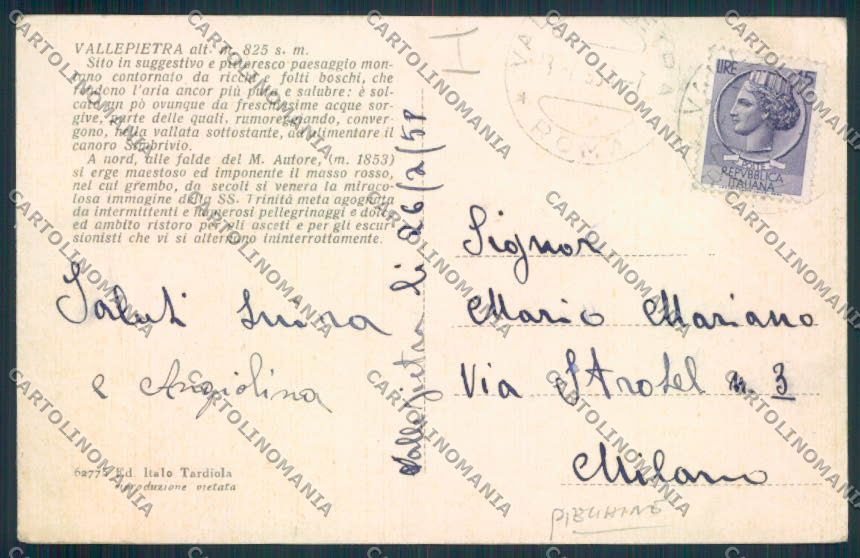 VALLEPIETRA alt. m. 825 s. m.
Sito in suggestivo e pittoresco paesaggio mon-
tano contornato da ricchi e folti boschi, che
rendono l'aria ancor più pura e salubre: è sol-
cata un pò ovunque da freschissime acque sor-
give, parte delle quali, rumoreggiando, conver-
gono, nella vallata sottostante, ad alimentare il
canoro Simbrivio.
A nord, alle falde del M. Autore, (m. 1853)
si erge maestoso ed imponente il masso rosso,
nel cui grembo, da secoli si venera la miraco-
losa immagine della SS. Trinità meta agognata
da intermittenti e numerosi pellegrinaggi e dolce
ed ambito ristoro per gli asceti e per gli escur-
sionisti che vi si alternano ininterrottamente.
Saluti
e Angiolina
62775 Ed. Italo Tardiola
riproduzione vietata
Vallepietra li 26/2/58
H
ROMA
LIRE 15
POSTE
REPVBBLICA
ITALIANA
Signor
Mario Mariano
Via Strotel n. 3
Milano
CARTOLINOMANIA